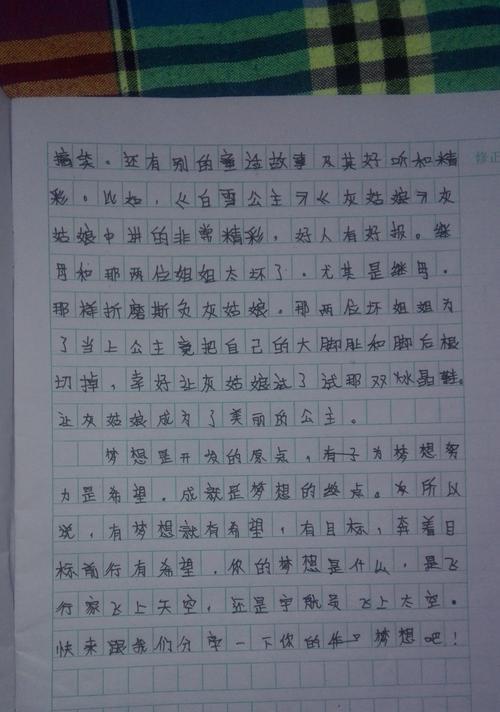 搞笑。还有别的童话故事及其好听和精
彩。比如，《白雪公主》《灰姑娘》灰
姑娘中讲的非常精彩，好人有好报。继
母和那两位姐姐太坏了。尤其是继母。
那样折磨欺负灰姑娘。那两位坏姐姐为
了当上公主竟把自己的大脚趾和脚后根
切掉，幸好让灰姑娘试了试那双水晶鞋。
让灰姑娘成为了美丽的公主。
梦想是开发的原点，为梦想努
力是希望。成就是梦想的终点。所以
说，有梦想就有希望，有目标，奔着目
标前行有希望。你的梦想是什么，是飞
行家飞上天空，还是宇航员飞上太空。
快来跟我们分享一下你的梦想吧！
修正